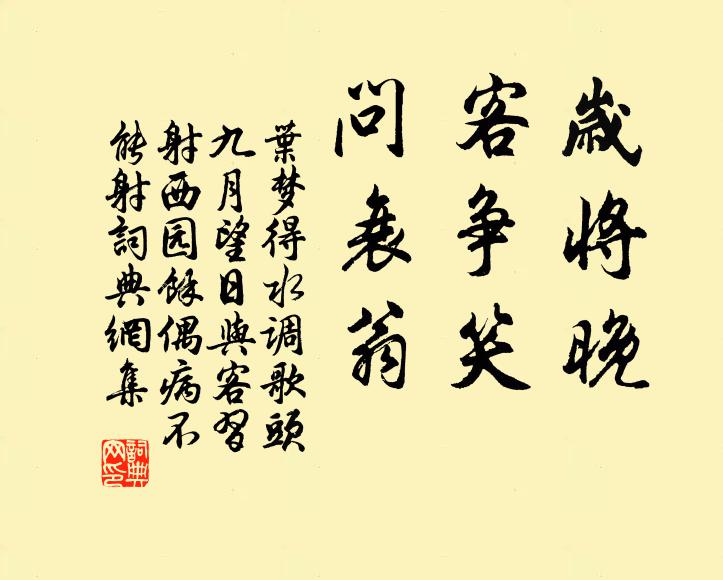 歲將晚
客爭笑
問衰翁
葉梦得水调歌頭
九月望日與客習
射西园餘偶病不
能射詞典網集
詞典网印